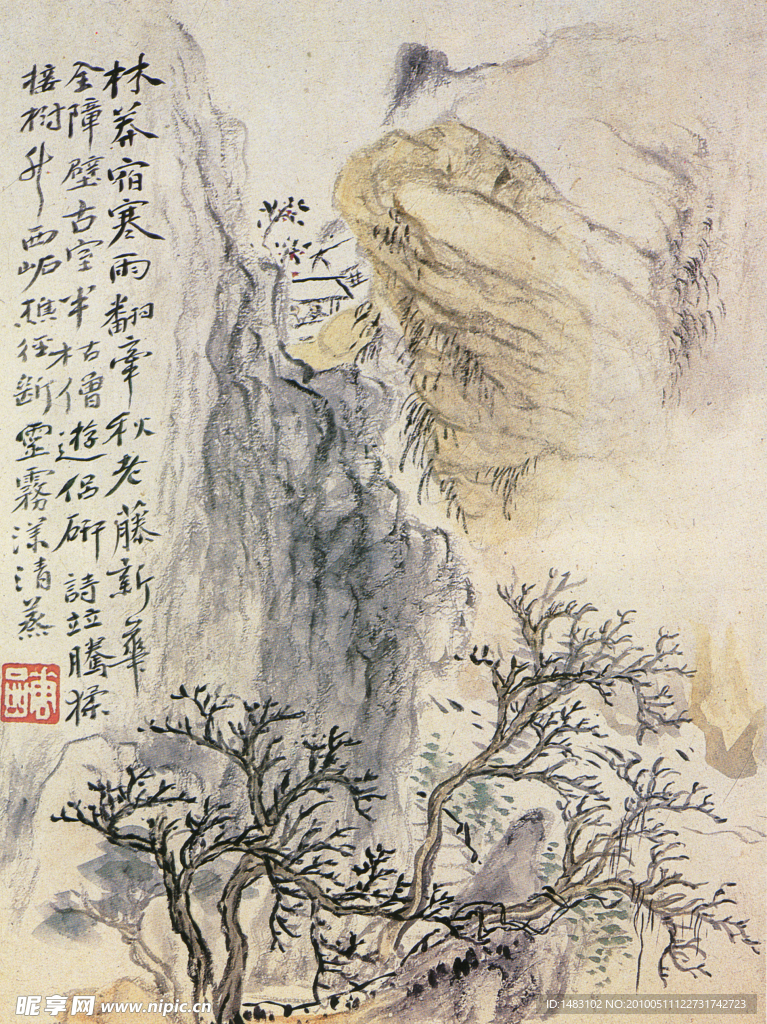 林莽宿寒雨翻牽秋老藤新華
全障壁古室半枯僧遊侶研詩竝騰猱
接樹升西岾樵徑斷靈霧漾清蒸
昵享网 www.nipic.cn
ID:1483102 NO:20100511122731742723